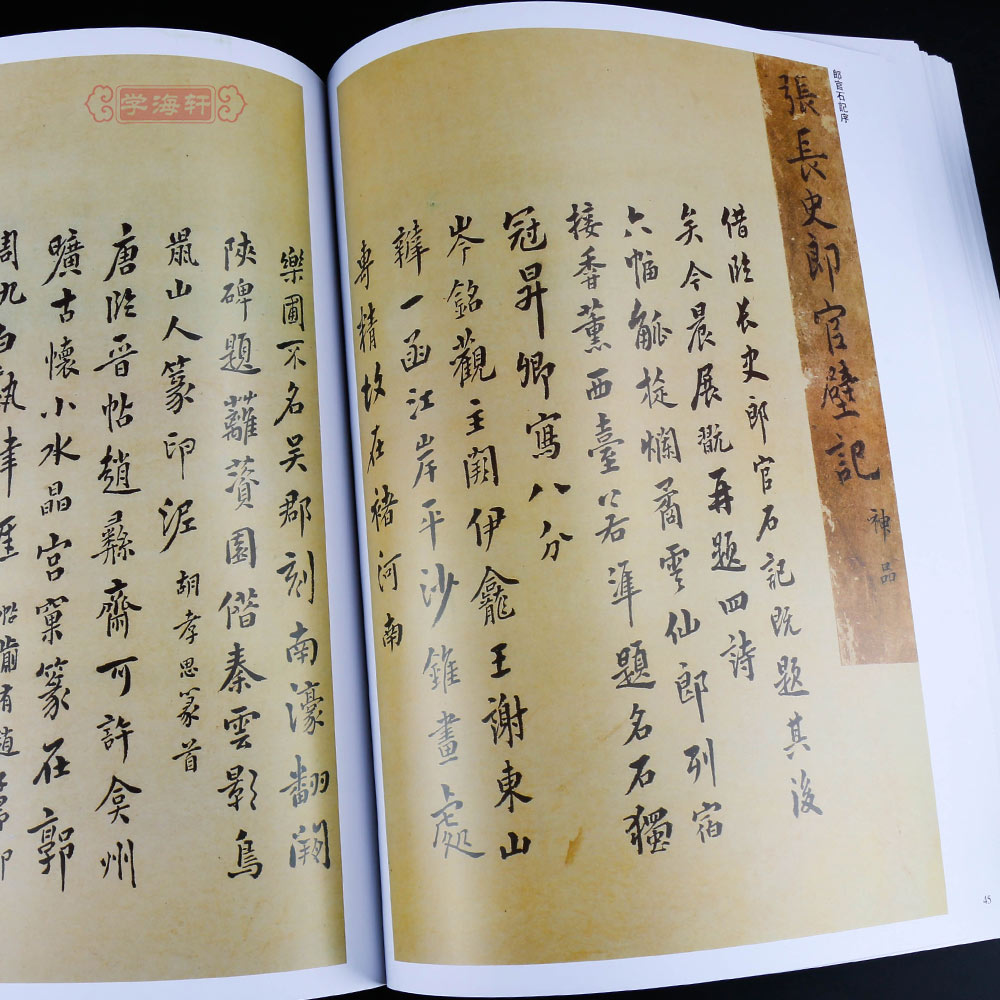 郎官石記序
張長史郎官壁記
神品
借臨長史郎官石記既題其後
矣今晨展翫再題四詩
六幅觚棱爛矞雲仙郎列宿
接香薰西臺若準題名石獨
冠昇卿寫八分
岑銘觀主闕伊龕王謝東山
韓一函江岸平沙錐畫處
專精故在褚河南
樂圃不名吳郡刻南濠翻闕
陝碑題蘿薋園偕秦雲影鳥
鼠山人篆印泥 胡孝思篆首
唐臨晉帖趙彝齋可許弇州
曠古懷小水晶宮窠篆在郭
周九
45
学海轩